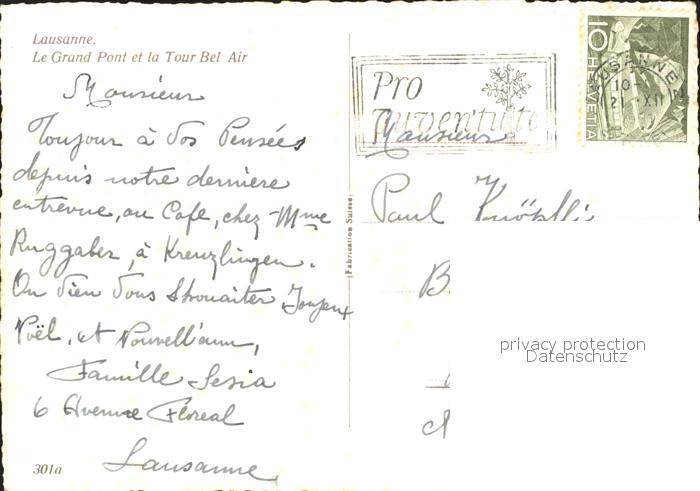 Lausanne.
Le Grand Pont et la Tour Bel Air
Monsieur
Toujour à Vos Pensées
depuis notre derniere
entrevue, au Café, chez Mme
Ruggaber, à Kreuzlingen.
On vien Vous Shouaiter Joyeux
Noël, et Nouvell'ann,
Famille Sesia
6 Avenue Floreal
Lausanne
301a
(Fabrication Suisse)
Pro
Juventute
10
HELVETIA
LAUSANNE 2
10-
21. XII
Monsieur
Paul Knöpfli
B
privacy protection
Datenschutz